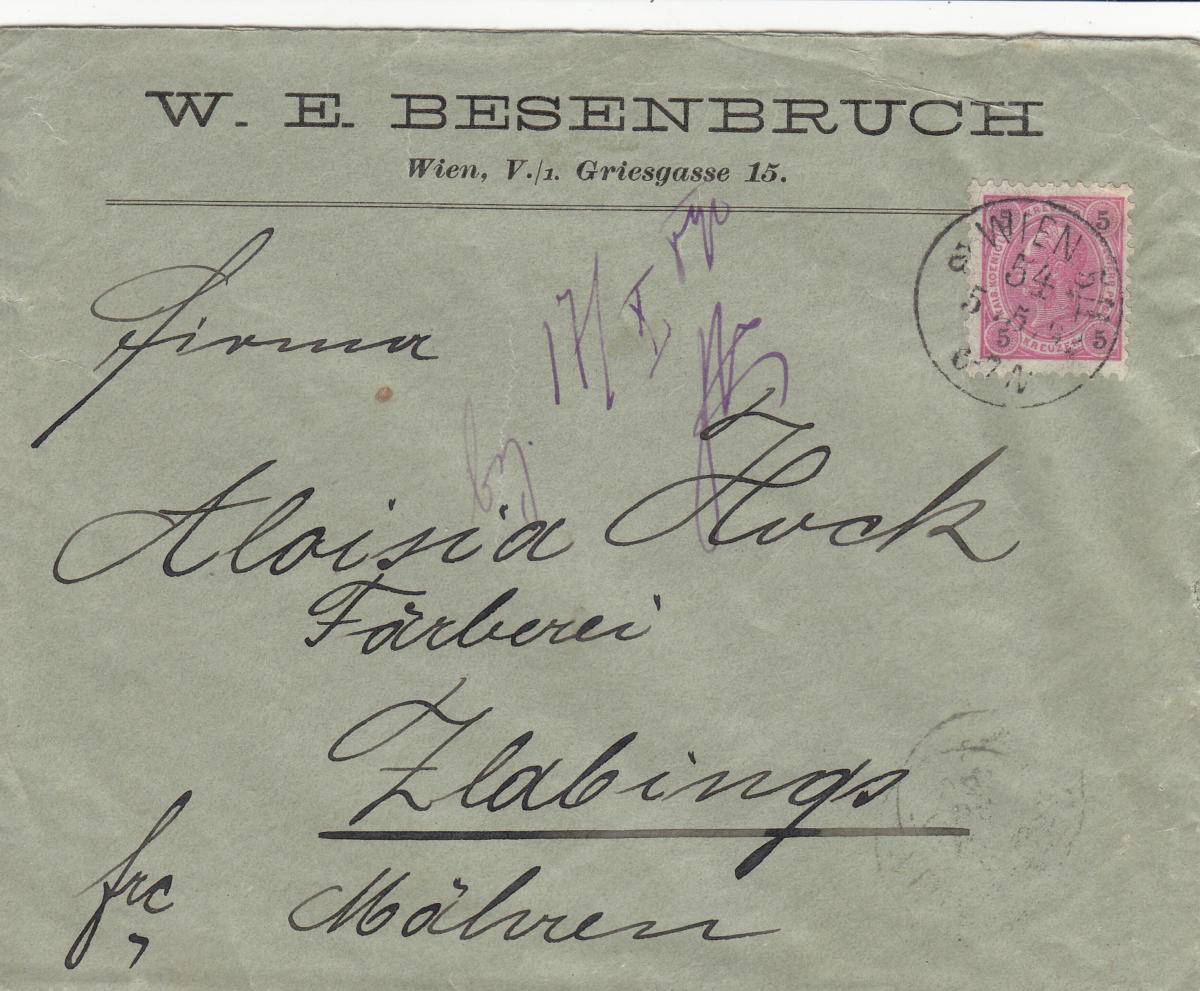 W. E. BESENBRUCH
Wien, V./1. Griesgasse 15.
5 5
WIEN
54
6-7N
5 KREUZER 5
Firma
17/X
Aloisia Hock
Färberei
Zlabings
frc
Mähren